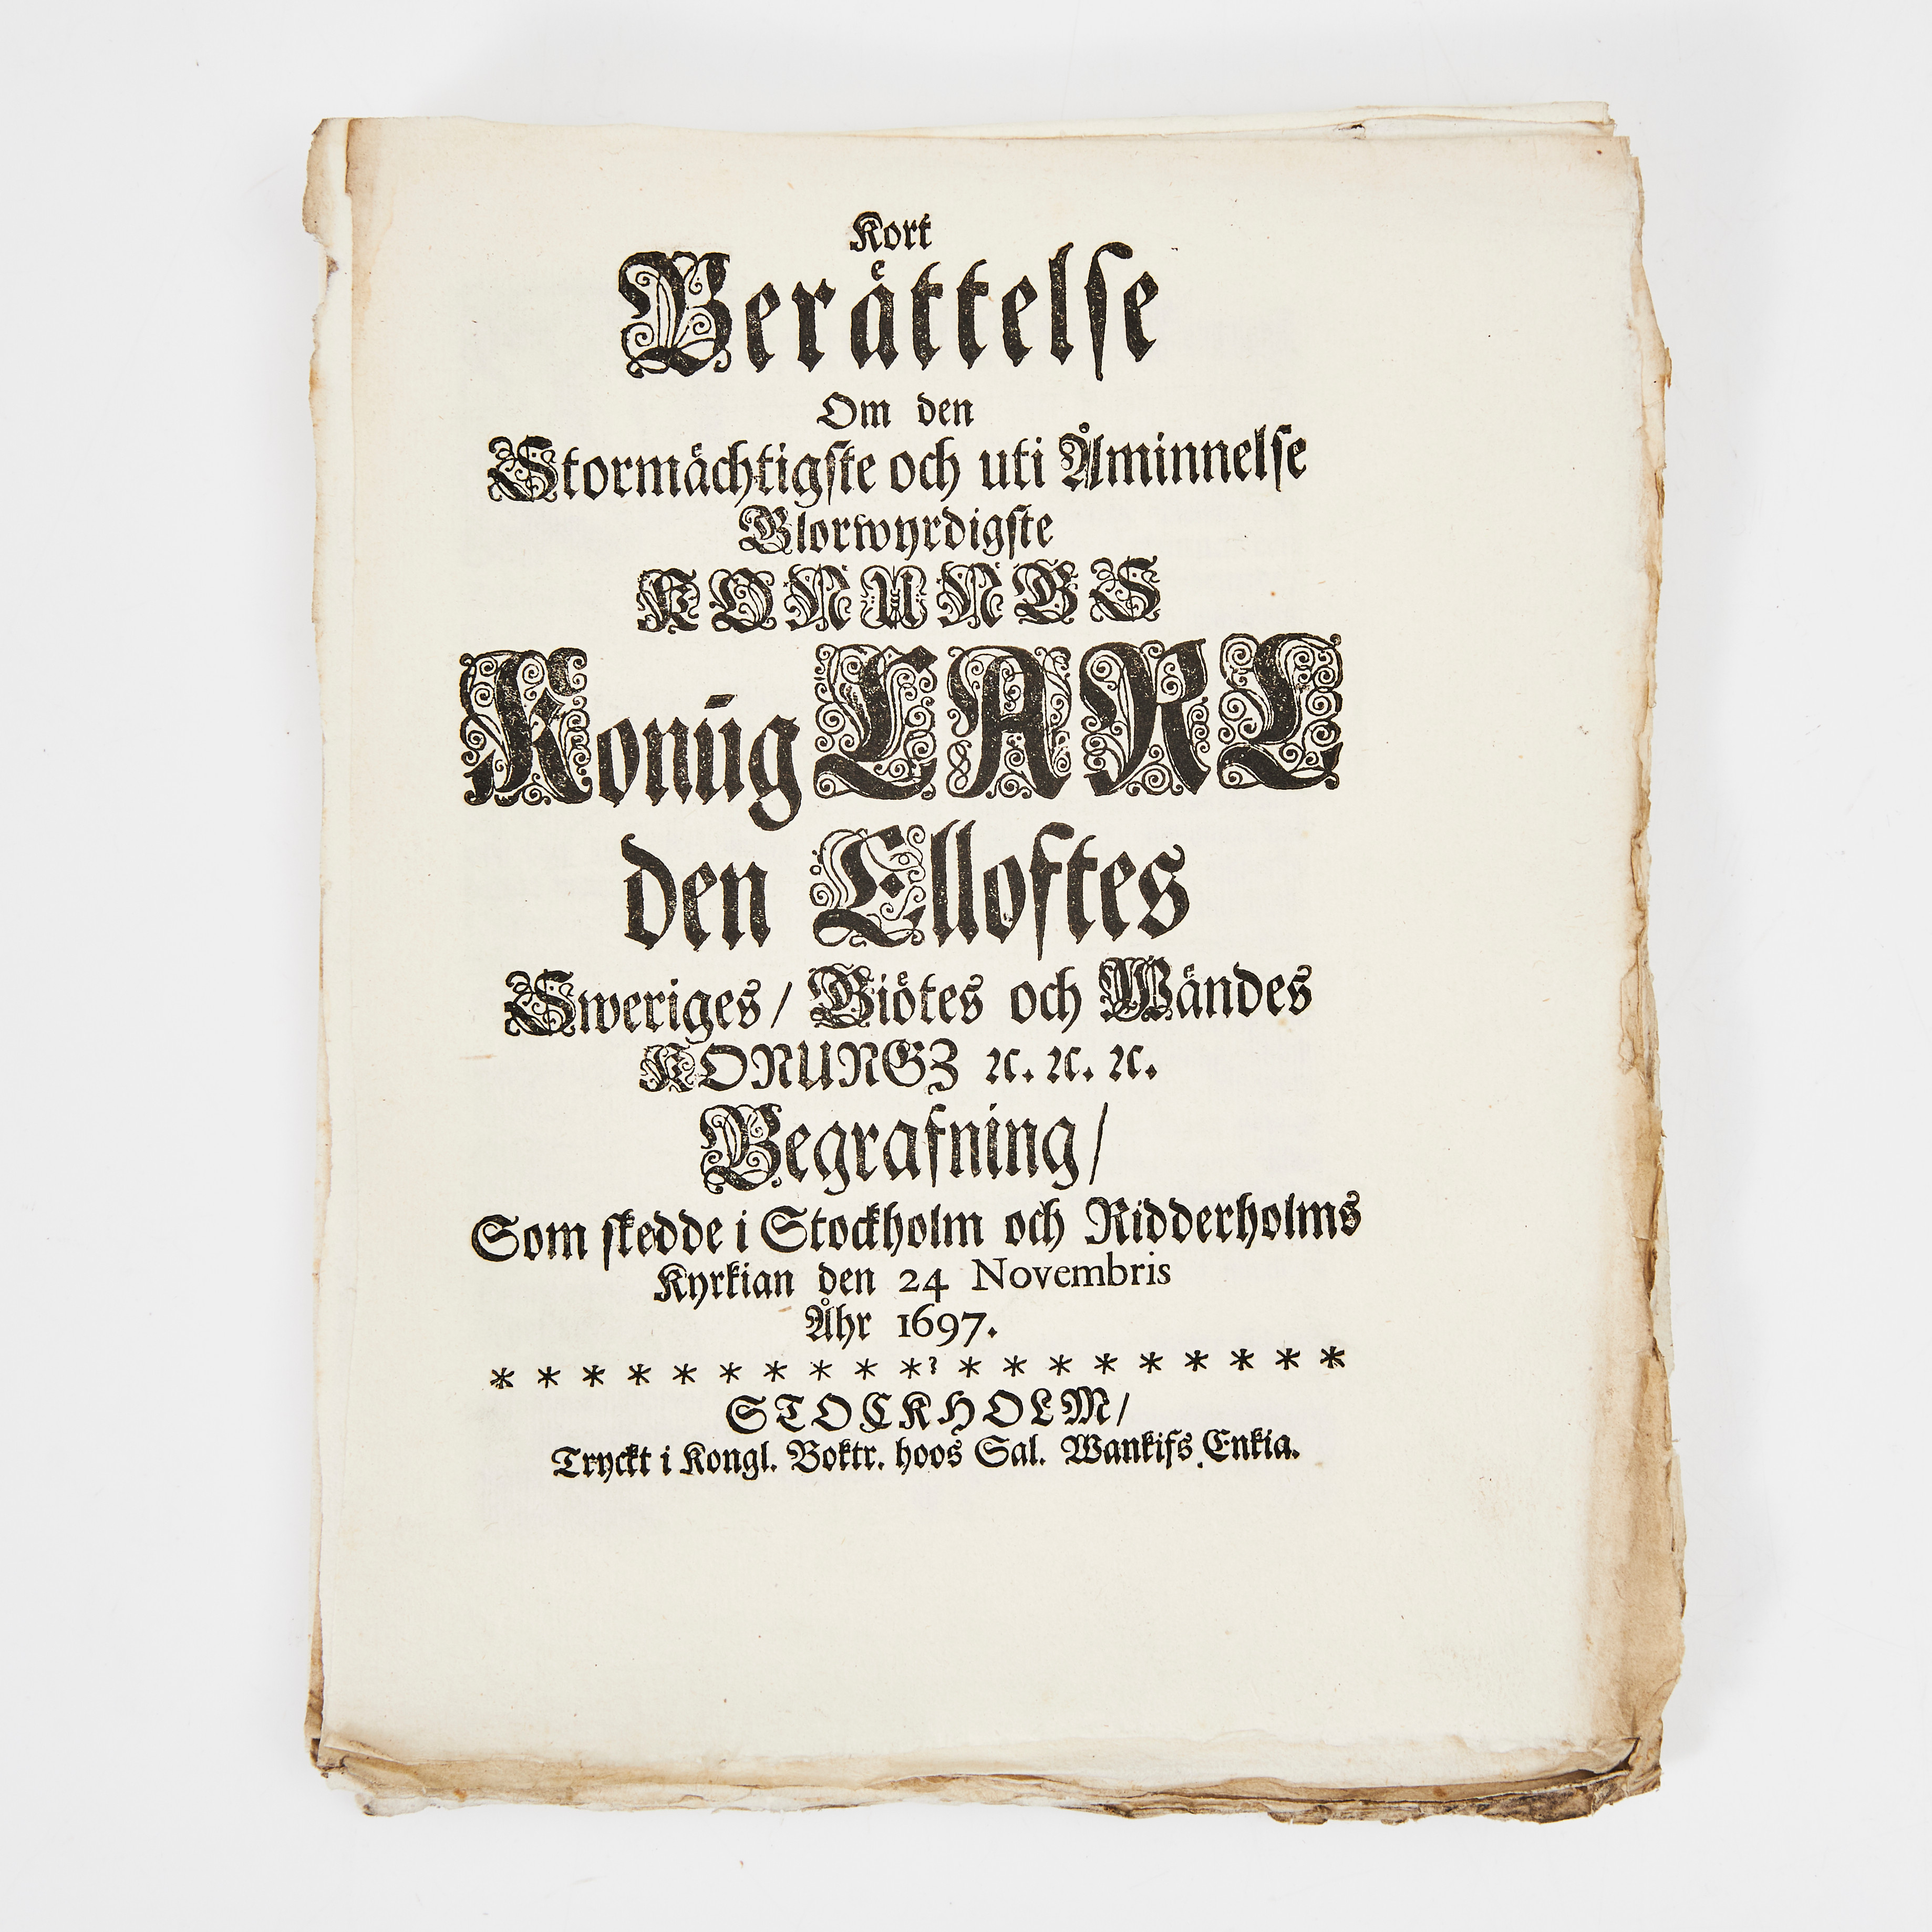 Kort
Berättelse
Om den
Stormächtigste och uti Åminnelse
Glorwyrdigste
KONUNGS
Konūg CARL
den Elloftes
Sweriges/ Giötes och Wändes
KONUNGZ ꝛc. ꝛc. ꝛc.
Begrafning/
Som skedde i Stockholm och Ridderholms
Kyrkian den 24 Novembris
Åhr 1697.
* * * * * * * * * *? * * * * * * * * *
STOCKHOLM/
Tryckt i Kongl. Boktr. hoos Sal. Wankifs Enkia.